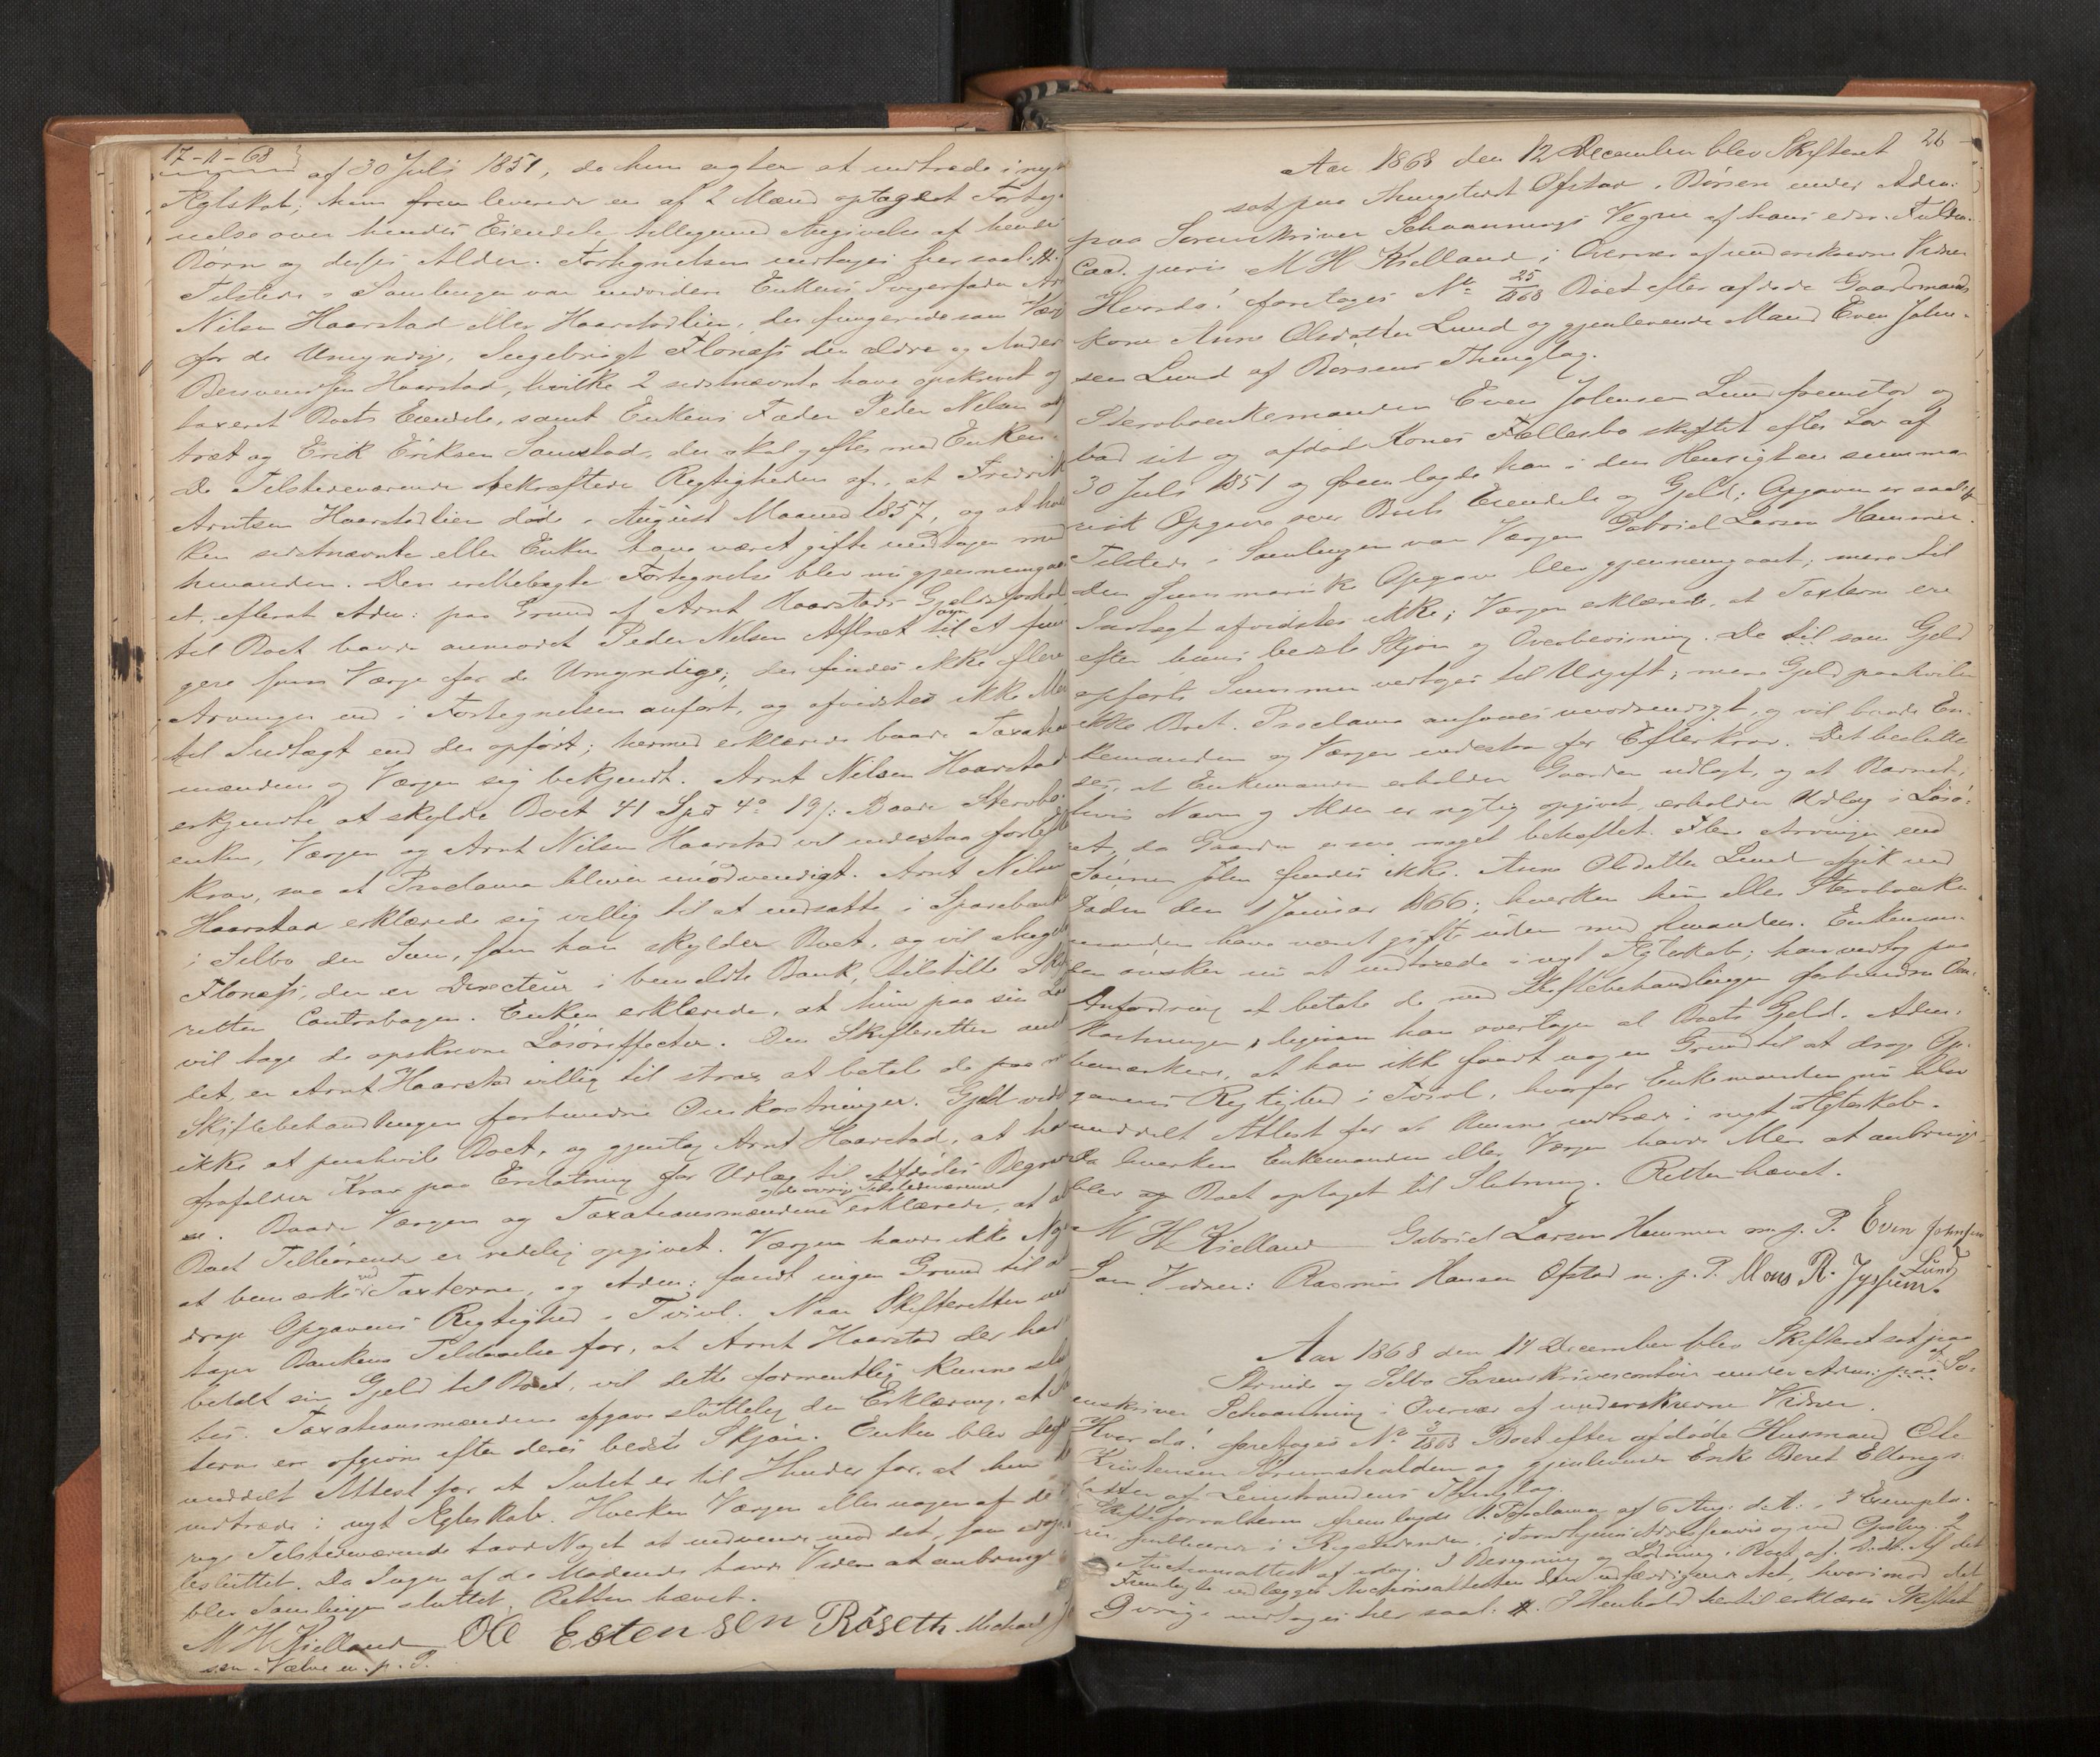 17-11-68
af 30 Juli 1851, da hun agter at indtræde i nyt
Ægteskab; hun fremleverede en af 2 Mænd optaget Forteg-
nelse over hendes Eiendele tilligemed Angivelse af hendes
Børn og disses Alder. Fortegnelsen indtages her saal. #.
Tilstede i Samlingen var endvidere Enkens Svigerfader Arnt
Nilsen Haarstad eller Haarstadlien, der fungerede som Værge
for de Umyndige, Ingebrigt Flonæss den ældre og Anders
Haarstad, hvilke 2 sidstnævnte have opskrevet og
taxeret Boets Eiendele, samt Enkens Fader Peder Nilsen
og Erik Eriksen Samstad, der skal giftes med Enken.
De Tilstedeværende bekræftede Rigtigheden af, at Fredrik
Arntsen Haarstadlien døde i August Maaned 1857, og at hver-
ken sidstnævnte eller Enken have været gifte undtagen med
hinanden. Den indleverede Fortegnelse blev nu gjennemgaa-
et, efterat Adm: paa Grund af Arnt Haarstads Gjeldsforhold
til Boet havde anmodet Peder Nilsen Aftræt om til at fun-
gere som Værge for de Umyndige; der findes ikke flere
Arvinger end i Fortegnelsen anført, og afvidstes ikke Mere
til Indtægt end der opført; hermed erklærede baade Taxations-
mændene og Værgen sig bekjendt. Arnt Nilsen Haarstad
erkjendte at skylde Boet 41 Spd 4 19/: Baade Stervbo-
enken, Værgen og Arnt Nilsen Haarstad vil indestaa for Efter-
krav, saa at Proclama bliver unødvendigt. Arnt Nilsen
Haarstad erklærede sig villig til at indsætte i Sparebanken
i Selbo den Sum, som han skylder Boet, og vil Ingebrigt
Flonæss, der er Directeur i bemeldte Bank, tilstille Skifte-
retten Contrabogen. Enken erklærede, at hun paa sin Lod
vil tage de opskrevne Løsøreffecter. Om Skifteretten
det, er Arnt Haarstad villig til strax at betale de
Skiftebehandlingen forbundne Omkostninger. Gjeld vides
ikke at paahvile Boet, og gjentog Arnt Haarstad, at han
frafalder Krav paa Erstatning for Udlæg til Afdødes Begra-
velse. Baade Værgen og Taxationsmændene og de øvrige Tilstedeværende erklærede, at
Boet Tilhørende er redelig opgivet. Værgen havde ikke Noget
at bemærke ved Taxterne, og Adm: fandt ingen Grund til at
drage Opgavens Rigtighed i Tvivl. Naar Skifteretten
tager Bankens Tilstaaelse for, at Arnt Haarstad der har
betalt sin Gjeld til Boet, vil dette formentlig kunne slut-
tes. Taxationsmændene afgave sluttelig den Erklæring, at
terne er opgivne efter deres bedste Skjøn. Enken blev derefter
meddelt Attest for at Intet er til Hinder for, at hun
indtræde i nyt Ægteskab. Hverken Værgen eller nogen af de øv-
rige Tilstedeværende havde Noget at indvende mod det, som er
besluttet. Da Ingen af de Mødende havde Videre at anbringe
blev Samlingen sluttet. Retten hævet.
M H Kielland Ole Estensen Røseth Michael
sen Vælve m. p. P.
26
Aar 1868 den 12 December blev Skifteret
sat paa Thingstedet Øfstad i Børsen under Adm:
paa Sorenskriver Schaannings Vegne af hans edsv. Fuldm.
Cand. juris M H Kielland i Overvær af underskrevne Vidner
Hvorda! foretoges No 25/1868 Boet efter afdøde Gaardmands-
kone Anne Olsdatter Lund og gjenlevende Mand Even John-
sen Lund af Børsens Thinglag.
Stervboenkemanden Even Johnsen Lund fremstod og
bad sit og afdøde Kones Fællesbo skiftet efter Lov af
30 Juli 1851 og fremlagde han i den Hensigt en summa-
risk Opgave over Boets Eiendele og Gjeld; Opgaven er saal. #.
Tilstede i Samlingen var Værgen Gabriel Larsen Hammer.
Den summariske Opgave blev gjennemgaaet; mere til
Indtægt afvidstes ikke; Værgen erklærede, at Taxterne ere
efter hans bedste Skjøn og Overbevisning. De til som Gjeld
opførte Summer vedtages til Udgift; mere Gjeld paahviler
ikke Boet. Proclama ansees unødvendigt, og vil baade En-
kemanden og Værgen indestaa for Efterkrav. Det beslutte-
des, at Enkemanden erholder Gaarden udlagt, og at Barnet,
hvis Navn og Alder er rigtig opgivet, erholder Udlæg i Løsø-
re, da Gaarden er saa meget behæftet. Flere Arvinger end
Sønnen John findes ikke. Anne Olsdatter Lund afgik ved
Døden den 1 Januar 1866; hverken hun eller Stervboenke-
manden have været gifte uden med hinanden. Enkeman-
den ønsker nu at indtræde i nyt Ægteskab; han vedtog paa
Anfordring at betale de med Skiftebehandlingen forbundne Om-
kostninger, ligesom han overtager al Boets Gjeld. Adm.
bemærkede, at han ikke fandt nogen Grund til at drage Op-
gavens Rigtighed i Tvivl, hvorfor Enkemanden nu blev
meddelt Attest for at kunne indtræde i nyt Ægteskab.
Da hverken Enkemanden eller Værgen havde Mere at anbringe,
blev og Boet optaget til Slutning. Retten hævet.
M H Kielland Gabriel Larsen Hammer m. p. P. Even Johnsen
Lund
Som Vidner: Rasmus Hansen Øfstad m. p. P. Mons R. Jyssum.
Aar 1868 den 14 December blev Skifteret sat paa
Strinde og Selbo Sorenskrivercontoir under Adm: paa af So-
renskriver Schaanning i Overvær af underskrevne Vidner.
Hvor da! foretoges No 3/1868 Boet efter afdøde Husmand Ole
Kristensen Strumshalden og gjenlevende Enke Beret Ellengs-
datter af Leinstrandens Thinglag.
Skifteforvalteren fremlagde 1. Proclama af 6 Aug. d. A. i 3 Exempla-
rer, publicerede i Rigstidenden, i Trondhjems Adresseavis og ved Opslag. 2
Auctionsattest af idag. 3 Beregning og Lodning i Boet af D. D. Af det
Fremlagte vedlægges Auctionsattesten den udfærdigende Act, hvorimod det
Øvrige indtages her saal. #. I Henhold hertil erklæres Skiftet